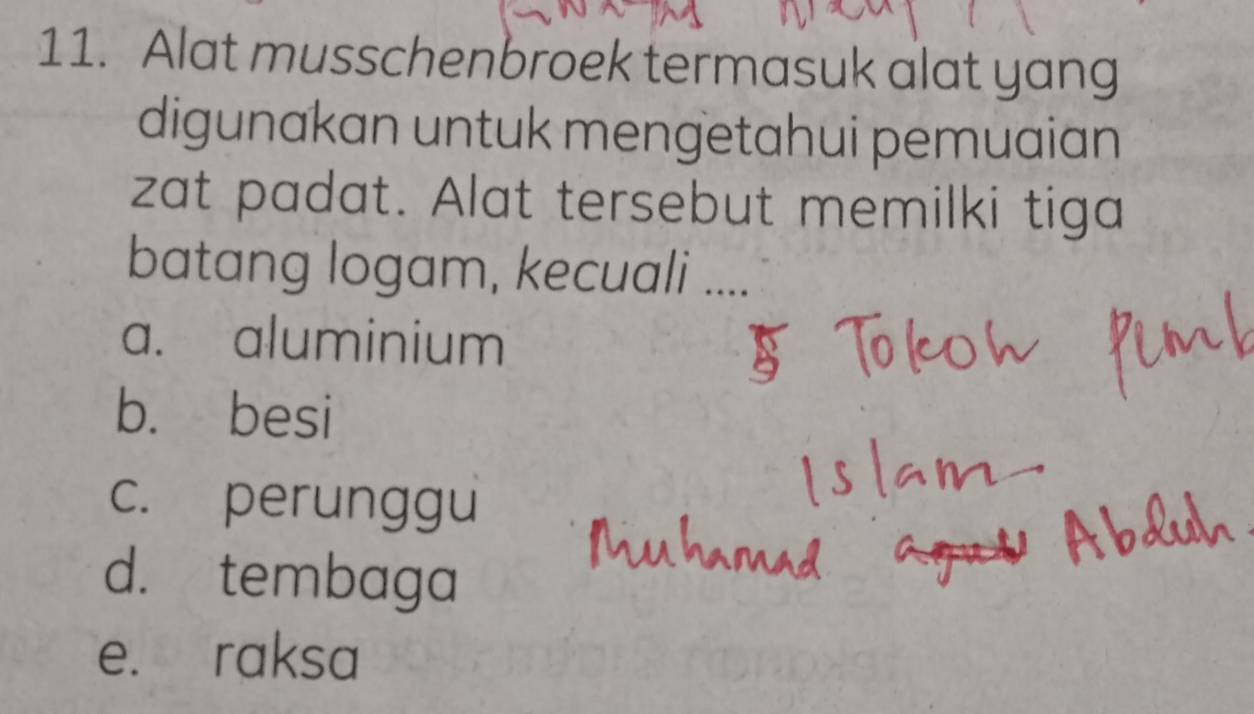 11. Alat musschenbroek termasuk alat yang
digunakan untuk mengetahui pemuaian
zat padat. Alat tersebut memilki tiga
batang logam, kecuali ....
a. aluminium
b. besi
c. perunggu
d. tembaga
e. raksa
Tokoh pemb
Islam
Muhamad Abduh